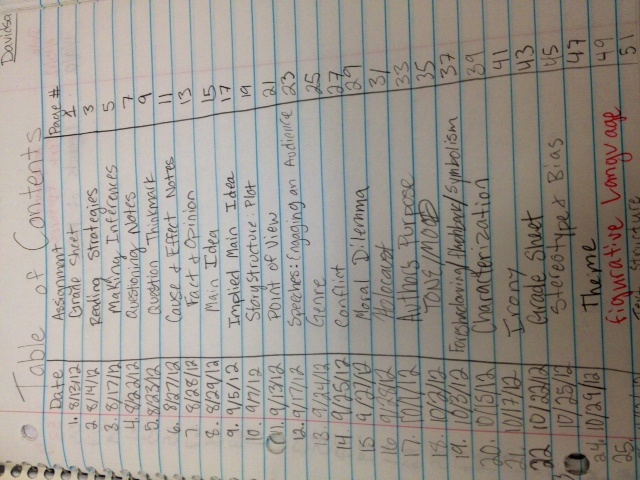 Davidsa
Table of Contents
Date Assignment Page #
1. 8/13/12 Grade Sheet 1
2. 8/14/12 Reading Strategies 3
3. 8/17/12 Making Inferences 5
4. 8/22/12 Questioning Notes 7
5. 8/23/12 Question Thinkmark 9
6. 8/27/12 Cause & Effect Notes 11
7. 8/28/12 Fact & Opinion 13
8. 8/29/12 Main Idea 15
9. 9/5/12 Implied Main Idea 17
10. 9/7/12 Story Structure: Plot 19
11. 9/13/12 Point of View 21
12. 9/17/12 Speeches: Engaging an Audience 23
13. 9/24/12 Genre 25
14. 9/25/12 Conflict 27
15. 9/27/12 Moral Dilemma 29
16. 9/28/12 Holocaust 31
17. 10/1/12 Author's Purpose 33
18. 10/2/12 TONE/MOOD 35
19. 10/3/12 Symbolism 37
20. 10/15/12 Characterization 39
21. 10/17/12 Irony 41
22. 10/22/12 Grade Sheet 43
10/25/12 Stereotype & Bias 45
24. 10/29/12 Theme 47
25. figurative language 49
51